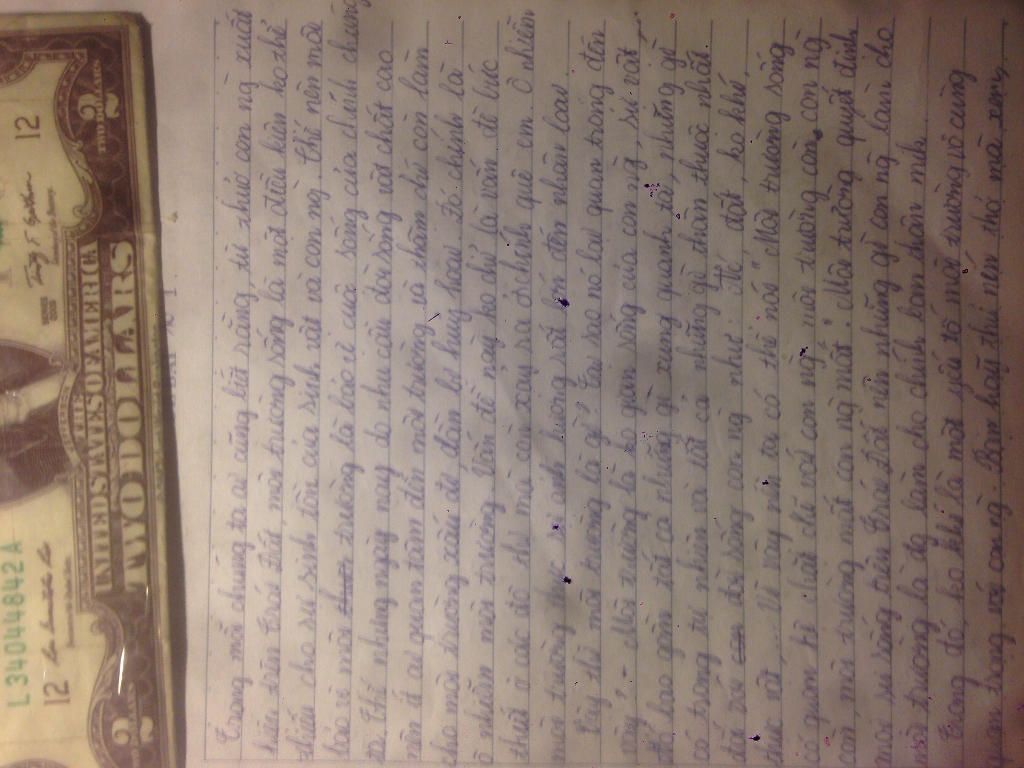 L34044842A
12
12
THE UNITED STATES OF AMERICA
TWO DOLLARS
2
2
Trong mỗi chúng ta ai cũng biết rằng, từ thuở con ng xuất
hiện trên Trái Đất môi trường sống là một điều kiện ko thể
thiếu cho sự sinh tồn của sinh vật và con ng. Thế nên mỗi
bảo vệ môi trường là bảo vệ cuộc sống của chính chúng
ta. Thế nhưng ngày nay do nhu cầu đời sống vật chất cao
nên ít ai quan tâm đến môi trường và thậm chí còn làm
cho môi trường xấu đi dần bị hủy hoại. Đó chính là
ô nhiễm môi trường. Vấn đề này ko chỉ là vấn đề bức
thiết ở các đô thị mà còn xảy ra ở chính quê em. Ô nhiễm
môi trường thực sự ảnh hưởng rất lớn đến nhân loại.
Vậy thì môi trường là gì? Tại sao nó lại quan trọng đến
vậy? - Môi trường là ko gian sống của con ng, sv, nó rất
bao gồm tất cả những gì xung quanh ta, những gì
có trong tự nhiên và tất cả những gì thân thuộc nhất
đối với đời sống con ng như: đất, ko khí,
thức vật... Vì vậy nên ta có thể nói "Môi trường sống
có quan hệ mật thiết với con ng, môi trường còn con ng
còn, môi trường mất con ng mất". Môi trường quyết định
mọi sự sống trên Trái Đất nên những gì con ng làm cho
môi trường là đã làm cho chính bản thân mình.
Trong đó ko khí là một yếu tố môi trường vô cùng
quan trọng với con ng. Bạn hãy thử nín thở mà xem,